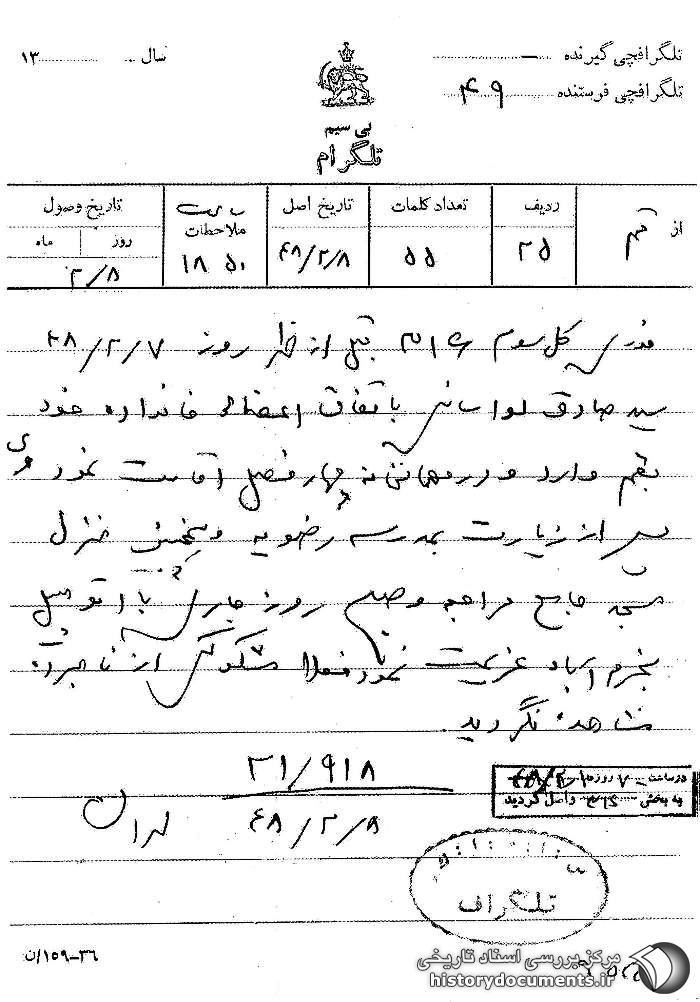 تلگرافچی گیرنده
سال ۱۳
تلگرافچی فرستنده ۴۹
بی سیم
تلگرام
از قم
ردیف ۲۵
تعداد کلمات ۵۵
تاریخ اصل ۴۸/۲/۸
ملاحظات ۱۸ ۵۰
تاریخ وصول
روز ماه
۲/۸
کل سوم قبل از ظهر روز ۴۸/۲/۷
سید صادق لواسانی باتفاق اعضای خانواده خود
بقم وارد و در مهمانخانه چهار فصل اقامت نمود وی
پس از زیارت بمدرسه رضویه و همچنین منزل
مسجد جامع مراجعه و صبح روز جاری با اتومبیل
بخرم آباد عزیمت نمود فعلا مشکوکی از نامبرده
مشاهده نگردید
۳۱/۹۱۸
۴۸/۲/۸
تهران
در ساعت ۷ روز
به بخش واصل گردید
تلگراف
۳۶-۱۵۹/ن
مرکز بررسی اسناد تاریخی
historydocuments.ir